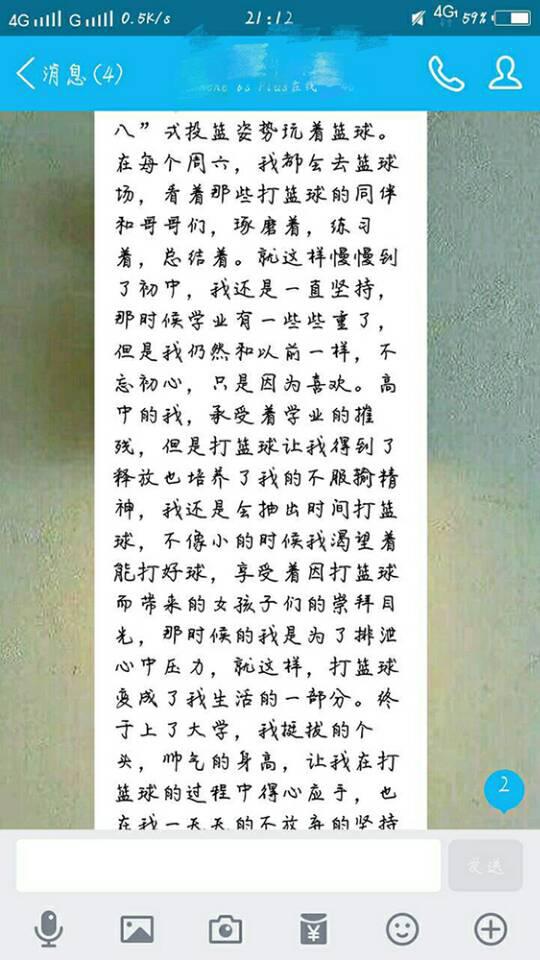 4G G 0.5K/s 21:12 4G1 59%
消息(4)
6s Plus在线
八”式投篮姿势玩着篮球。
在每个周六，我都会去篮球
场，看着那些打篮球的同伴
和哥哥们，琢磨着，练习
着，总结着。就这样慢慢到
了初中，我还是一直坚持，
那时候学业有一些些重了，
但是我仍然和以前一样，不
忘初心，只是因为喜欢。高
中的我，承受着学业的摧
残，但是打篮球让我得到了
释放也培养了我的不服输精
神，我还是会抽出时间打篮
球，不像小的时候我渴望着
能打好球，享受着因打篮球
而带来的女孩子们的崇拜目
光，那时候的我是为了排泄
心中压力，就这样，打篮球
变成了我生活的一部分。终
于上了大学，我挺拔的个
头，帅气的身高，让我在打
篮球的过程中得心应手，也
在我一天天的不放弃的坚持
2
发送
¥